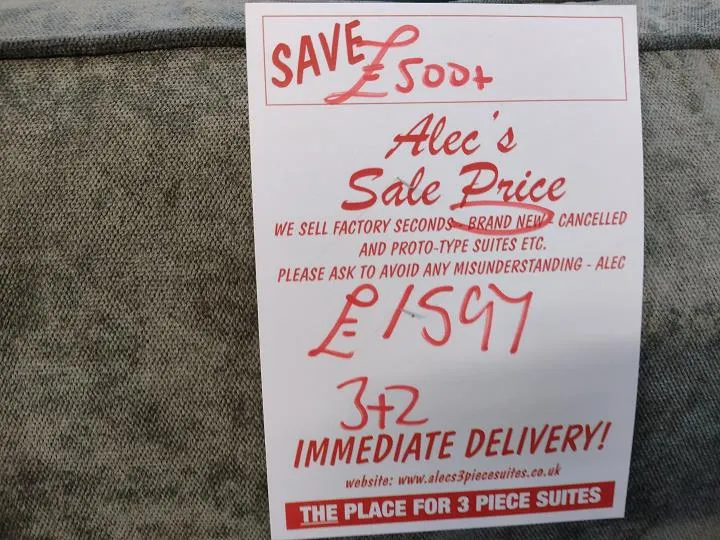 SAVE £500+
Alec's
Sale Price
WE SELL FACTORY SECONDS - BRAND NEW - CANCELLED
AND PROTO-TYPE SUITES ETC.
PLEASE ASK TO AVOID ANY MISUNDERSTANDING - ALEC
£1597
3+2
IMMEDIATE DELIVERY!
website: www.alecs3piecesuites.co.uk
THE PLACE FOR 3 PIECE SUITES